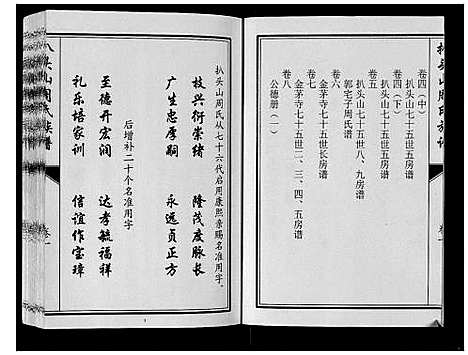 扒头山周氏族谱
卷一
卷四（中）
扒头山七十五世五房谱
卷四（下）
扒头山七十五世五房谱
卷五
扒头山七十五世八、九房谱
郭宅子周氏谱
卷六
金茅寺七十五世长房谱
卷七
金茅寺七十五世二、三、四、五房谱
卷八
公德册（一）
扒头山周氏从七十六代启用康熙亲赐名准用字
枝兴衍崇绪　隆茂度脉长
广生忠厚嗣　永远贞正方
后增补二十个名准用字
至德开宏润　达孝毓福祥
礼乐培家训　信谊作宝璋
八头山周氏族谱
卷一